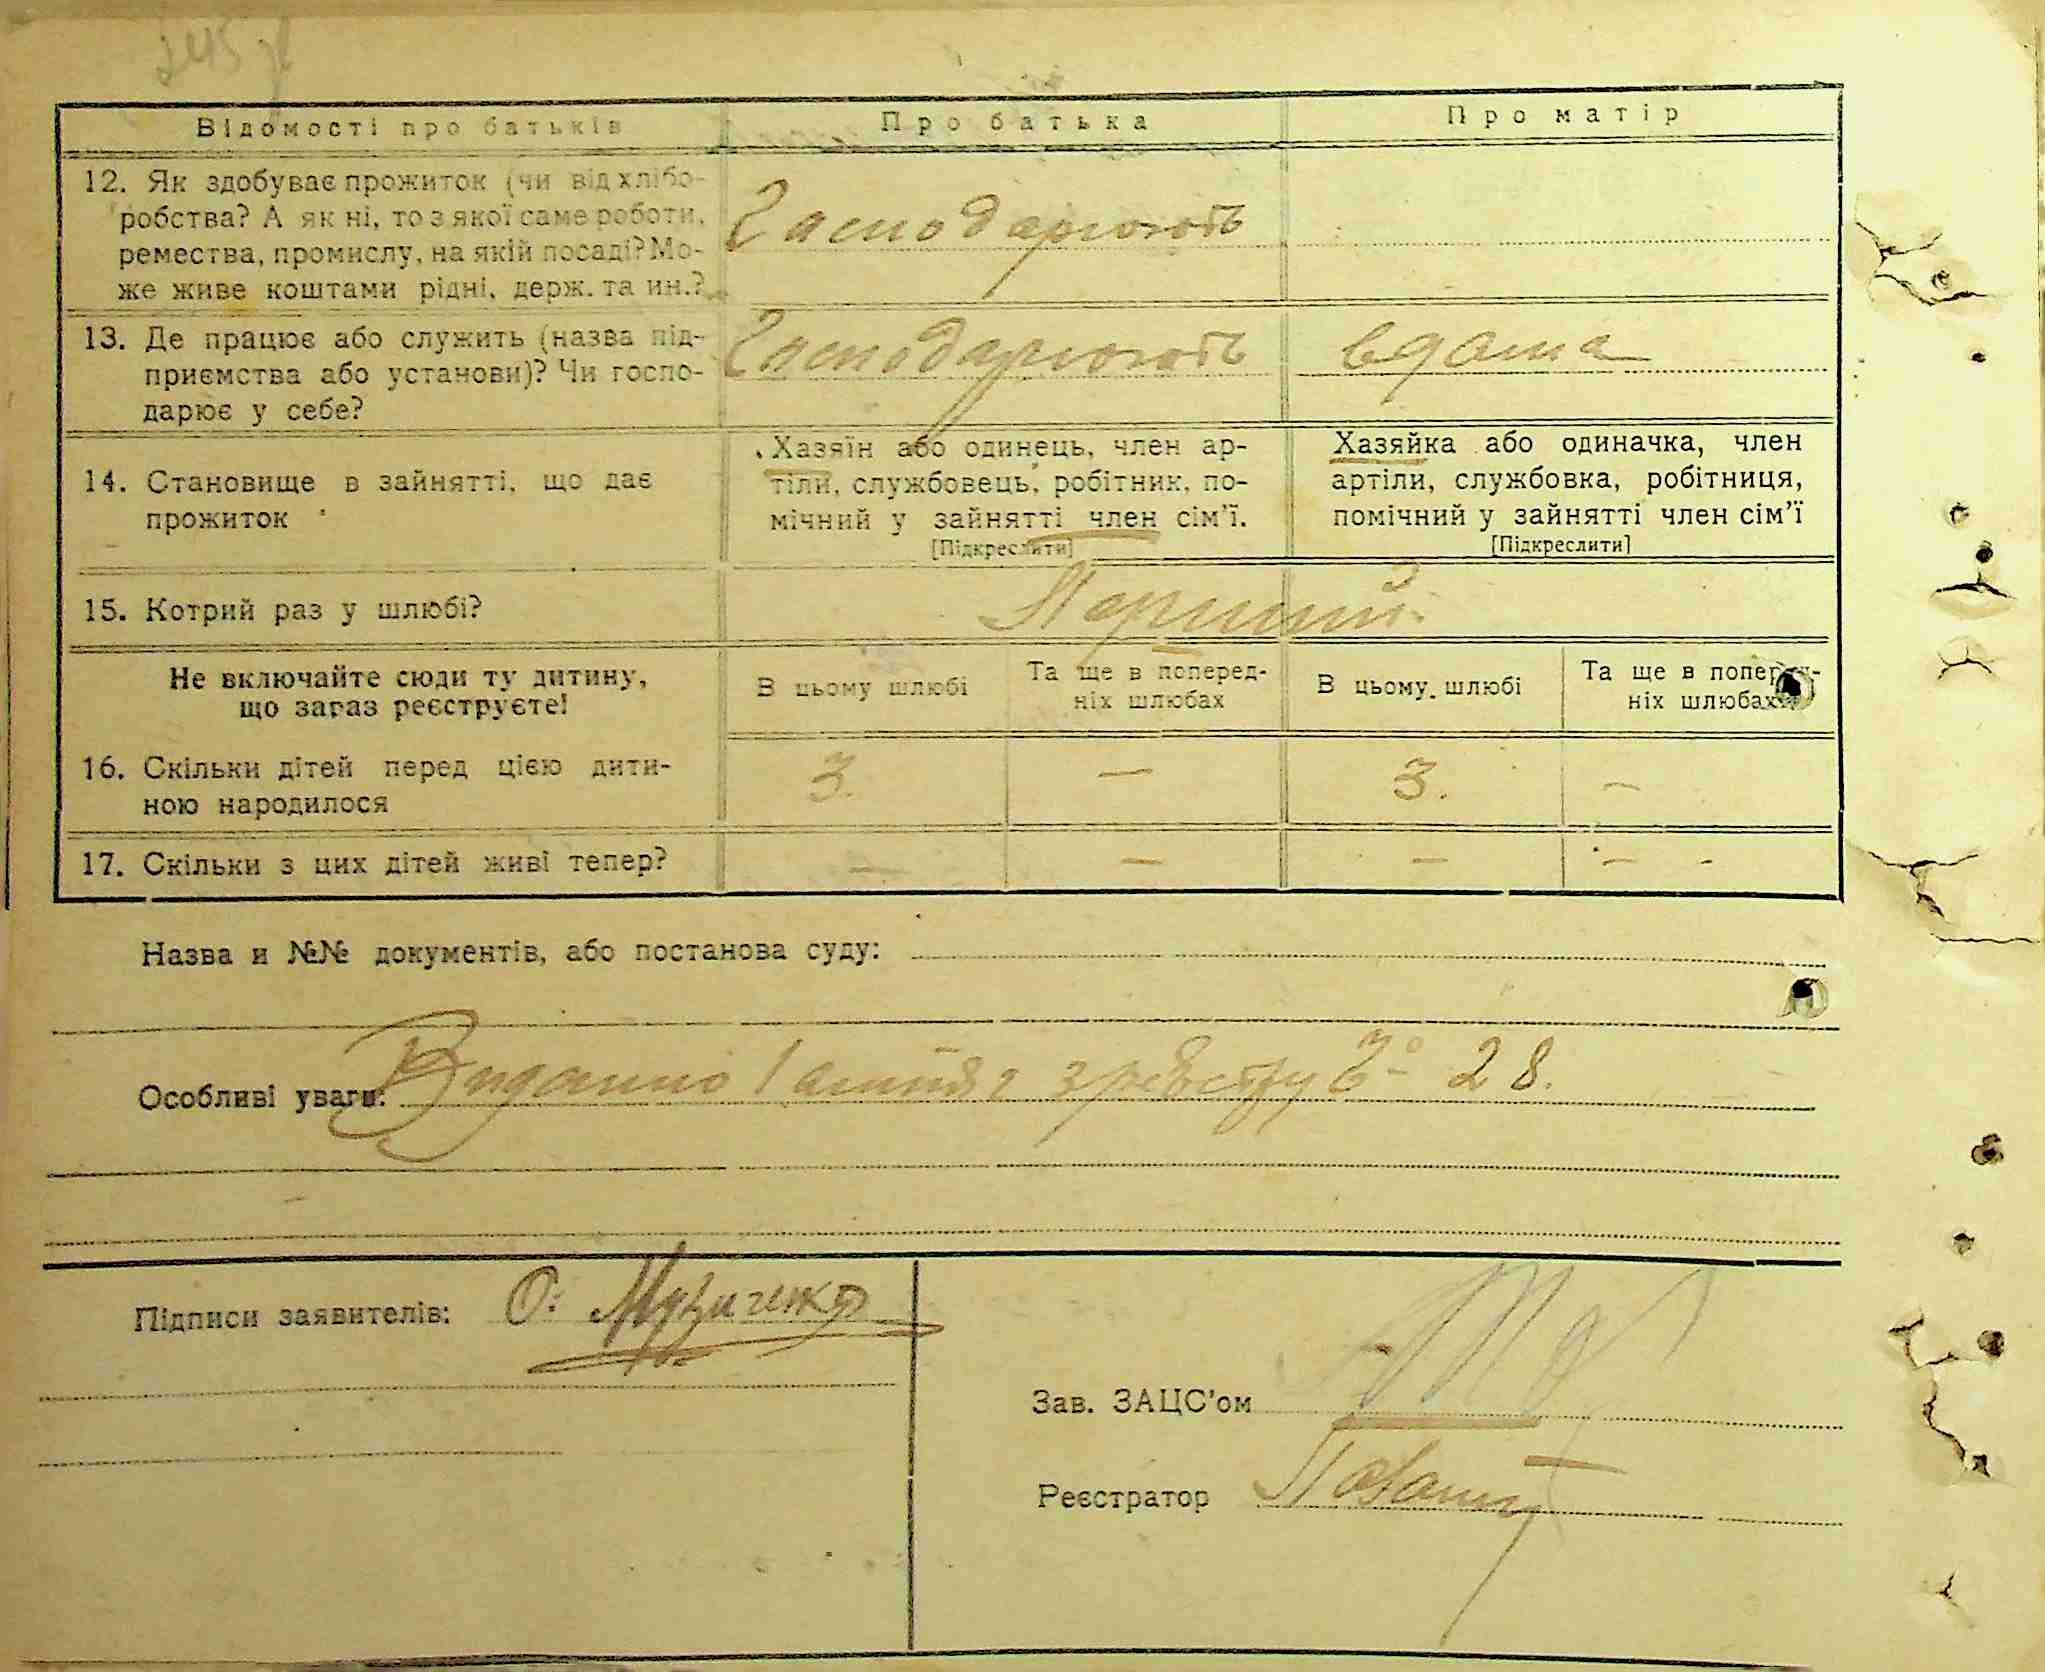 Відомості про батьків Про батька Про матір
12. Як здобуває прожиток (чи від хлібо-
робства? А як ні, то з якої саме роботи,
ремества, промислу, на якій посаді? Мо-
же живе коштами рідні, держ. та ин.?
Господарюють
13. Де працює або служить (назва під-
приємства або установи)? Чи госпо-
дарює у себе?
Господарюють вдома
14. Становище в зайнятті, що дає
прожиток
Хазяїн або одинець, член ар-
тіли, службовець, робітник, по-
мічний у зайнятті член сім'ї.
[Підкреслити]
Хазяйка або одиначка, член
артіли, службовка, робітниця,
помічний у зайнятті член сім'ї
[Підкреслити]
15. Котрий раз у шлюбі? Перший
Не включайте сюди ту дитину,
що зараз реєструєте!
В цьому шлюбі
Та ще в поперед-
ніх шлюбах
В цьому шлюбі
Та ще в поперед-
ніх шлюбах
16. Скільки дітей перед цією дити-
ною народилося
3. — 3. —
17. Скільки з цих дітей живі тепер? — — — —
Назва и №№ документів, або постанова суду:
Особливі уваги: 28.
Підписи заявителів: О. Музиченко
Зав. ЗАЦС'ом
Реєстратор